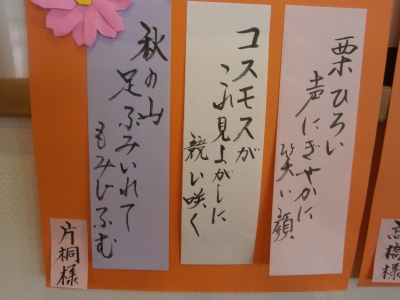 栗ひろい
声にぎやかに
笑い顔
コスモスが
これ見よがしに
競い咲く
秋の山
足ふみいれて
もみじふむ
片桐様
高橋様